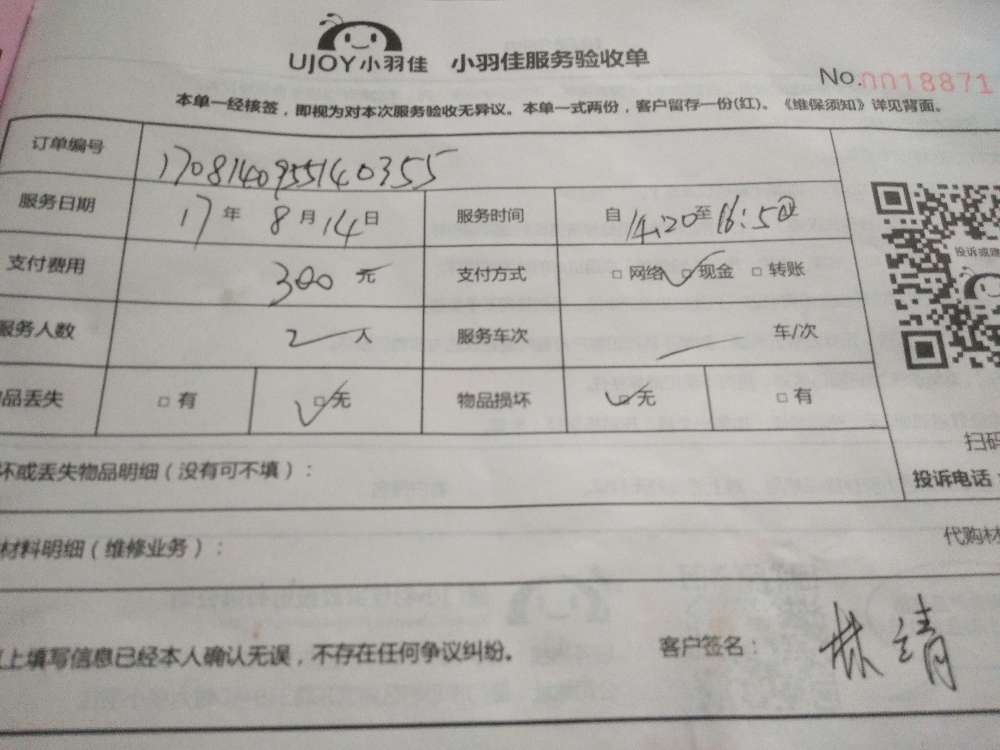 UJOY小羽佳 小羽佳服务验收单
No.0018871
本单一经核签，即视为对本次服务验收无异议。本单一式两份，客户留存一份(红)。《维保须知》详见背面。
订单编号 1708140955140355
服务日期 17年 8月14日 服务时间 自14:20至16:50
支付费用 300 元 支付方式 □网络 ☑现金 □转账
服务人数 2 人 服务车次 车/次
品丢失 □有 ☑无 物品损坏 ☑无 □有
投诉或建
扫码
坏或丢失物品明细（没有可不填）：
投诉电话：
材料明细（维修业务）：
代购材
上填写信息已经本人确认无误，不存在任何争议纠纷。 客户签名：林靖